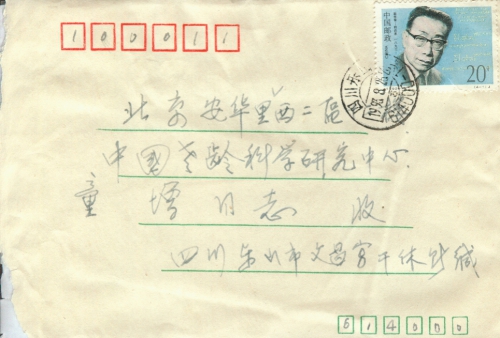 100011
中国邮政
20分
四川乐
北京安华里西二區
中國老龄科学研究中心
童增同志 收
四川乐山市文昌宫干休所缄
614000